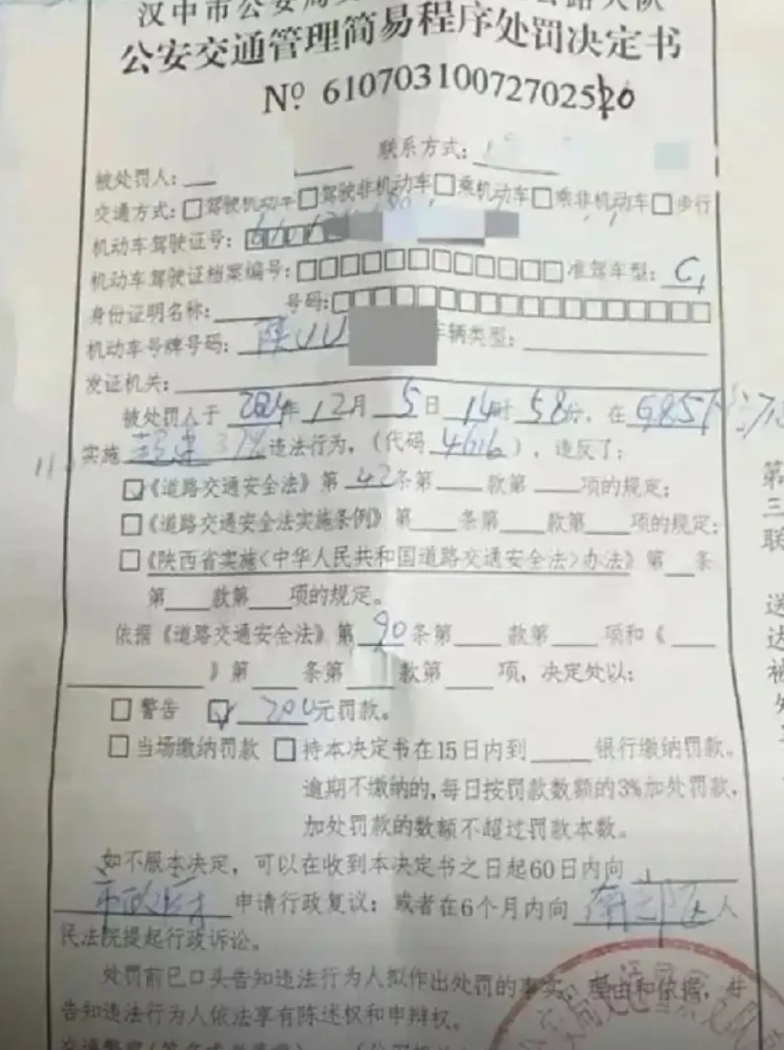 汉中市公安局
公安交通管理简易程序处罚决定书
№ 6107031007270252
联系方式:
被处罚人:
交通方式:□驾驶机动车□驾驶非机动车□乘机动车□乘非机动车□步行
机动车驾驶证号:
机动车驾驶证档案编号: 准驾车型: C1
身份证明名称: 号码:
机动车号牌号码: 陕UU 车辆类型:
发证机关:
被处罚人于 2024年 12月 5日 14时 58分, 在 G85
实施 超速 违法行为, (代码 4616), 违反了:
☑《道路交通安全法》第 42条第 款第 项的规定;
□《道路交通安全法实施条例》第 条第 款第 项的规定;
□《陕西省实施〈中华人民共和国道路交通安全法〉办法》第 条
第 款第 项的规定。
依据《道路交通安全法》第 90条第 款第 项和《
》第 条第 款第 项, 决定处以:
□ 警告 ☑ 200元罚款。
□ 当场缴纳罚款 □ 持本决定书在15日内到 银行缴纳罚款。
逾期不缴纳的, 每日按罚款数额的3%加处罚款,
加处罚款的数额不超过罚款本数。
如不服本决定, 可以在收到本决定书之日起60日内向
市政府 申请行政复议; 或者在6个月内向 南郑区 人
民法院提起行政诉讼。
处罚前已口头告知违法行为人拟作出处罚的事实、理由和依据, 并
告知违法行为人依法享有陈述权和申辩权。
第
三
联
送
达
被
处